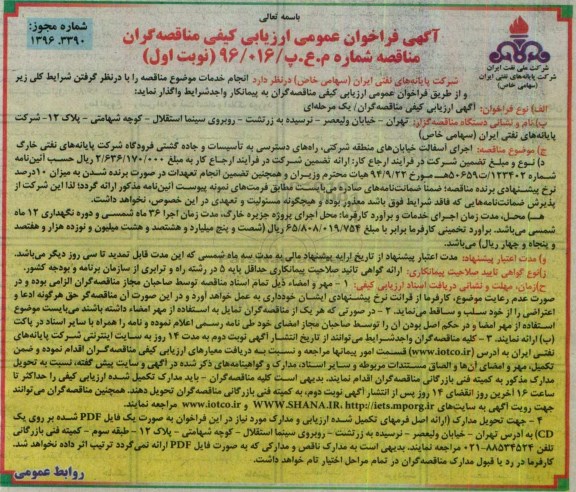 باسمه تعالی
شماره مجوز:
۱۳۹۶. ۳۳۹۰
آگهی فراخوان عمومی ارزیابی کیفی مناقصه‌گران
مناقصه شماره م.ع.پ/۹۶/۰۱۶ (نوبت اول)
شرکت ملی نفت ایران
شرکت پایانه‌های نفتی ایران
(سهامی خاص)
شرکت پایانه‌های نفتی ایران (سهامی خاص) درنظر دارد انجام خدمات موضوع مناقصه را با درنظر گرفتن شرایط کلی زیر
و از طریق فراخوان عمومی ارزیابی کیفی مناقصه‌گران به پیمانکار واجدشرایط واگذار نماید:
الف) نوع فراخوان: آگهی ارزیابی کیفی مناقصه‌گران/ یک مرحله‌ای
ب) نام و نشانی دستگاه مناقصه‌گزار: تهران - خیابان ولیعصر - نرسیده به زرتشت - روبروی سینما استقلال - کوچه شهامتی - پلاک ۱۲- شرکت
پایانه‌های نفتی ایران (سهامی خاص)
ج) موضوع مناقصه: اجرای آسفالت خیابان‌های منطقه شرکتی، راه‌های دسترسی به تأسیسات و جاده گشتی فرودگاه شرکت پایانه‌های نفتی خارک
د) نوع و مبلغ تضمین شرکت در فرآیند ارجاع کار: ارائه تضمین شرکت در فرآیند ارجاع کار به مبلغ ۲/۶۳۶/۱۷۰/۰۰۰ ریال حسب آئین‌نامه
شماره ۱۲۳۴۰۲/ت۵۰۶۵۹هـ مورخ ۹۴/۹/۲۲ هیات محترم وزیران و همچنین تضمین انجام تعهدات در صورت برنده شدن به میزان ۱۰درصد
نرخ پیشنهادی برنده مناقصه؛ ضمنا ضمانت‌نامه‌های صادره می‌بایست مطابق فرمت‌های نمونه پیوست آئین‌نامه مذکور ارائه گردد؛ لذا این شرکت از
پذیرش ضمانت‌نامه‌هایی که فاقد شرایط فوق باشد معذور بوده و هیچگونه مسئولیت و تعهدی در این خصوص، نخواهد داشت.
هـ) محل، مدت زمان اجرای خدمات و برآورد کارفرما: محل اجرای پروژه جزیره خارک، مدت زمان اجرا ۳۶ ماه شمسی و دوره نگهداری ۱۲ ماه
شمسی می‌باشد. برآورد تخمینی کارفرما برابر با مبلغ ۶۵/۸۰۸/۰۱۹/۷۵۴ ریال (شصت و پنج میلیارد و هشتصد و هشت میلیون و نوزده هزار و هفتصد
و پنجاه و چهار ریال) می‌باشد.
و) مدت اعتبار پیشنهاد: مدت اعتبار پیشنهاد از تاریخ ارایه پیشنهاد مالی به مدت سه ماه شمسی که این مدت قابل تمدید تا سی روز دیگر می‌باشد.
ز) نوع گواهی تایید صلاحیت پیمانکاری: ارائه گواهی تائید صلاحیت پیمانکاری حداقل پایه ۵ در رشته راه و ترابری از سازمان برنامه و بودجه کشور.
ح) زمان، مهلت و نشانی دریافت اسناد ارزیابی کیفی: ۱ - مهر و امضاء ذیل تمام اسناد مناقصه توسط صاحبان مجاز مناقصه‌گران الزامی بوده و در
صورت عدم رعایت موضوع، کارفرما از قرائت نرخ پیشنهادی ایشان خودداری به عمل خواهد آورد و در این صورت آن مناقصه‌گر حق هرگونه ادعا و
اعتراضی را از خود سلب و ساقط می‌نماید. ۲ - در صورتی که هر یک از مناقصه‌گران تمایل به استفاده از مهر امضاء داشته باشند می‌بایست موضوع
استفاده از مهر امضا و در حکم اصل بودن آن را توسط صاحبان مجاز امضای خود طی نامه رسمی اعلام نموده و نامه را همراه با سایر اسناد در پاکت
(ب) ارائه نمایند. ۳ - کلیه مناقصه‌گران واجدشرایط می‌توانند از تاریخ انتشار آگهی نوبت دوم به مدت ۱۴ روز به سایت اینترنتی شرکت پایانه‌های
نفتی ایران به آدرس (www.iotco.ir) قسمت امور پیمانها مراجعه و نسبت به دریافت معیارهای ارزیابی کیفی مناقصه‌گران اقدام نموده و ضمن
تکمیل، مهر و امضای آن‌ها و الصاق مستندات مربوطه و سایر اسناد، مدارک و گواهینامه‌های ذکر شده در آگهی و سایت پیش گفته، نسبت به تحویل
مدارک مذکور به کمیته فنی بازرگانی مناقصه‌گران اقدام نمایند. بدیهی است کلیه مناقصه‌گران - باید مدارک تکمیل شده ارزیابی کیفی را حداکثر تا
ساعت ۱۶ آخرین روز انقضای ۱۴ روز پس از انتشار آگهی نوبت دوم، به کمیته فنی بازرگانی مناقصه‌گران تحویل دهند. همچنین مناقصه‌گران می‌توانند
جهت رویت آگهی به سایت‌های WWW.SHANA.IR، http://iets.mporg.ir و www.iotco.ir مراجعه نمایند.
۴ - جهت تحویل مدارک (ارائه اصل فرمهای تکمیل شده ارزیابی و مدارک مورد نیاز در این فراخوان به صورت یک فایل PDF شده بر روی یک
CD) به آدرس تهران - خیابان ولیعصر - نرسیده به زرتشت - روبروی سینما استقلال - کوچه شهامتی - پلاک ۱۲ - طبقه سوم - کمیته فنی بازرگانی
تلفن ۸۸۵۳۴۵۲۴-۰۲۱ مراجعه نمایند. بدیهی است به مدارک ناقص و مدارکی که به صورت فایل PDF ارائه نمی‌گردد ترتیب اثر داده نخواهد شد.
کارفرما در رد یا قبول مدارک مناقصه‌گران در تمام مراحل اختیار تام خواهد داشت.
روابط عمومی